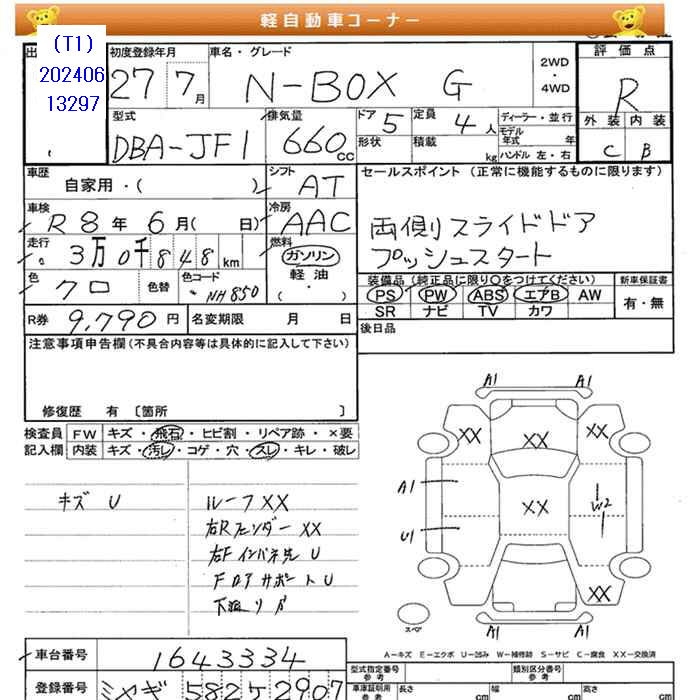 軽自動車コーナー
(T1)
202406
13297
初度登録年月
27 7月
車名・グレード
N-BOX G
2WD
・
4WD
評価点
R
外装 内装
C B
型式
DBA-JF1
排気量
660 cc
ドア 5
形状
定員 4人
積載 kg
ディーラー・並行
モデル年式 年
ハンドル 左・右
車歴
自家用・( )
シフト
AT
セールスポイント (正常に機能するものに限ります)
両側スライドドア
プッシュスタート
車検
R8年 6月( 日)
冷房
AAC
走行
3万0千848km
燃料
ガソリン
軽油
( ・ )
色
クロ
色替
色コード
NH850
装備品 (純正品に限り○をつけてください)
PS PW ABS エアB AW
SR ナビ TV カワ
新車保証書
有・無
R券 9,790円
名変期限 月 日
後日品
注意事項申告欄(不具合内容等は具体的に記入して下さい)
修復歴 有 〔箇所 〕
検査員 FW キズ・飛石・ヒビ割・リペア跡・×要
記入欄 内装 キズ・汚レ・コゲ・穴・スレ・キレ・破レ
キズ U
ルーフXX
右Rフェンダー XX
右Fインパネ先 U
Fロアサポート U
A1 A1
XX XX XX
A1
XX
W2
U1
XX
A1 A1
スペア
A-キズ E-エクボ U-凹み W-補修跡 S-サビ C-腐食 XX-交換済
車台番号
1643334
型式指定番号
参考
類別区分番号
参考
登録番号
ミヤギ 582 ラ 2907
車庫証明用
参考
長さ cm
幅 cm
高さ cm